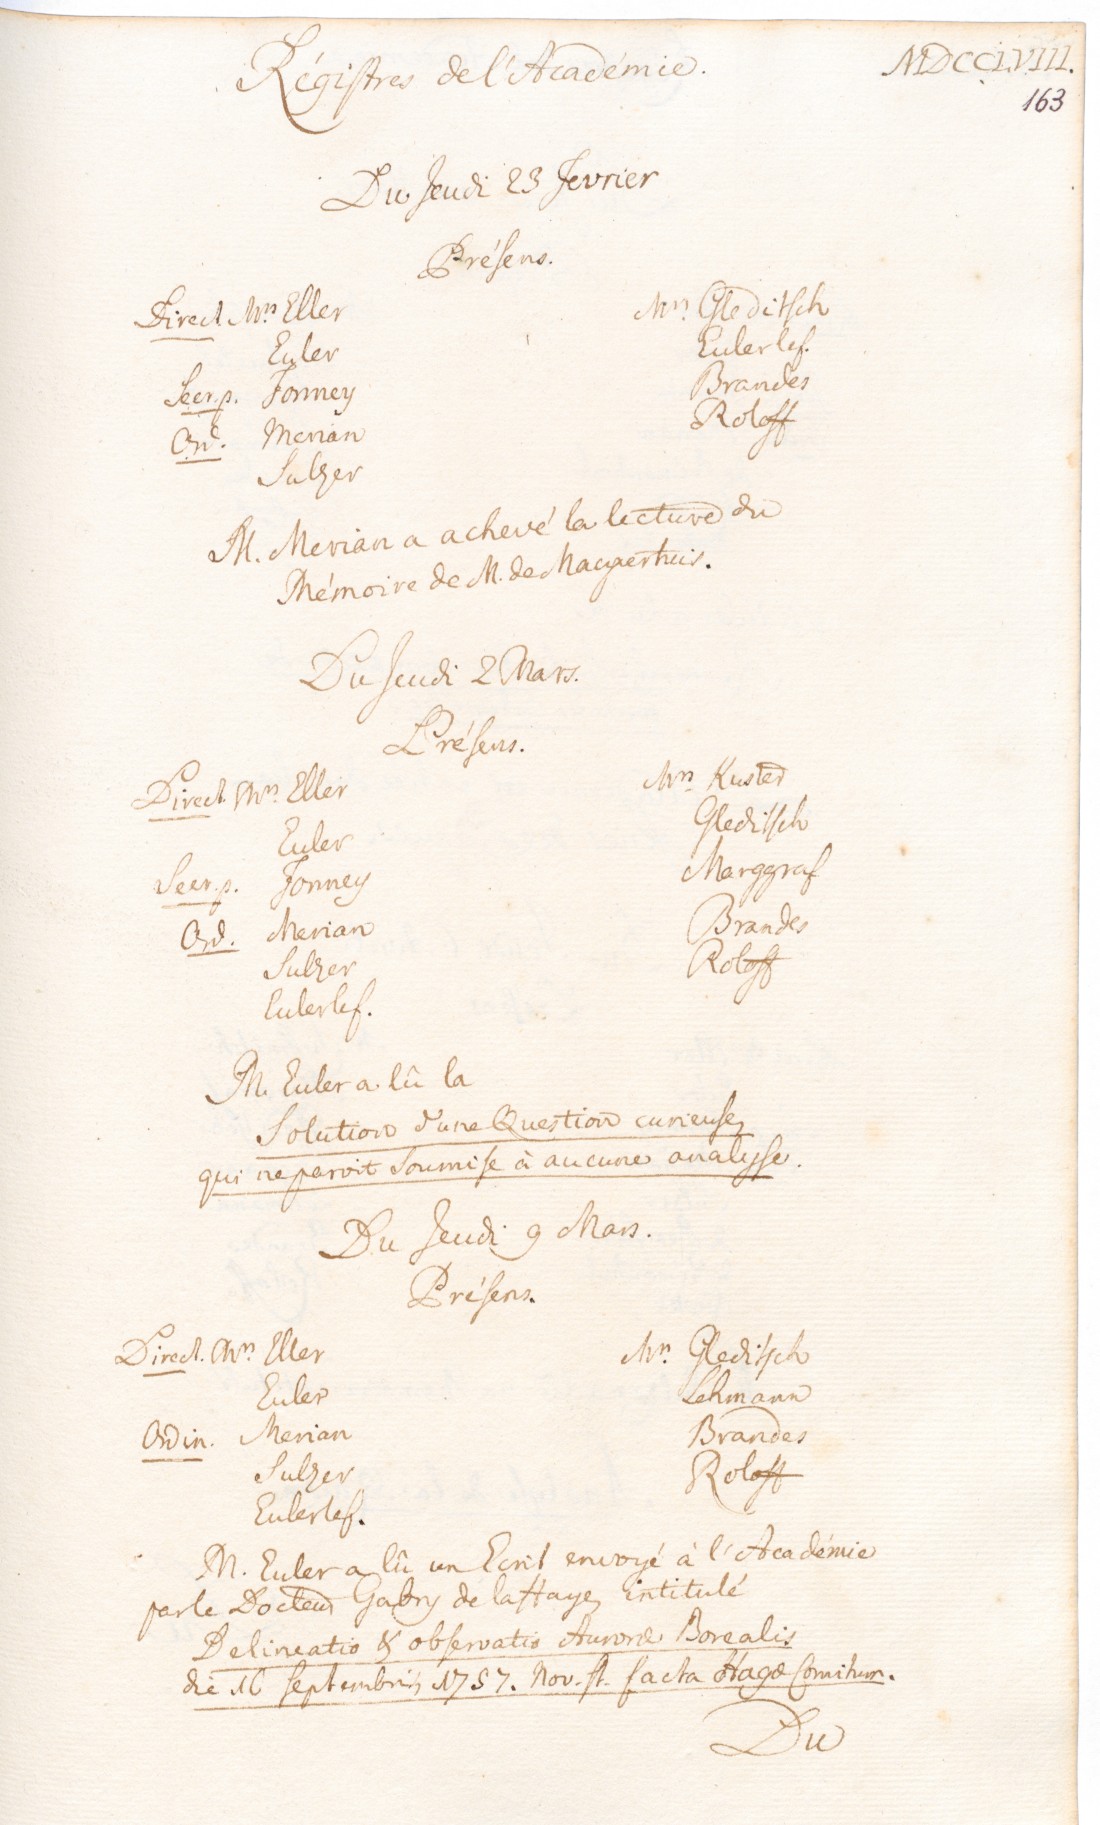 Régistres de l'Académie.
MDCCLVIII.
163
Du Jeudi 23 Fevrier
Présens.
Direct. Mrs. Eller
Euler
Secr. p. Formey
Ord. Merian
Sulzer
Mrs. Gleditsch
Euler le f.
Brandes
Roloff
M. Merian a achevé la lecture du
Mémoire de M. de Maupertuis.
Du Jeudi 2 Mars.
Présens.
Direct. Mrs. Eller
Euler
Secr. p. Formey
Ord. Merian
Sulzer
Euler le f.
Mrs. Kuster
Gleditsch
Marggraf
Brandes
Roloff
M. Euler a lû la
Solution d'une Question curieuse,
qui ne paroit soumise à aucune analyse.
Du Jeudi 9 Mars.
Présens.
Direct. Mrs. Eller
Euler
Ordin. Merian
Sulzer
Euler le f.
Mrs. Gleditsch
Lehmann
Brandes
Roloff
M. Euler a lû un Ecrit envoyé à l'Académie
par le Docteur Gabry de la Haye, intitulé
Delineatio & observatio Auroræ Borealis
die 16 Septembris, 1757. Nov. st. facta Hagæ Comitum.
Du